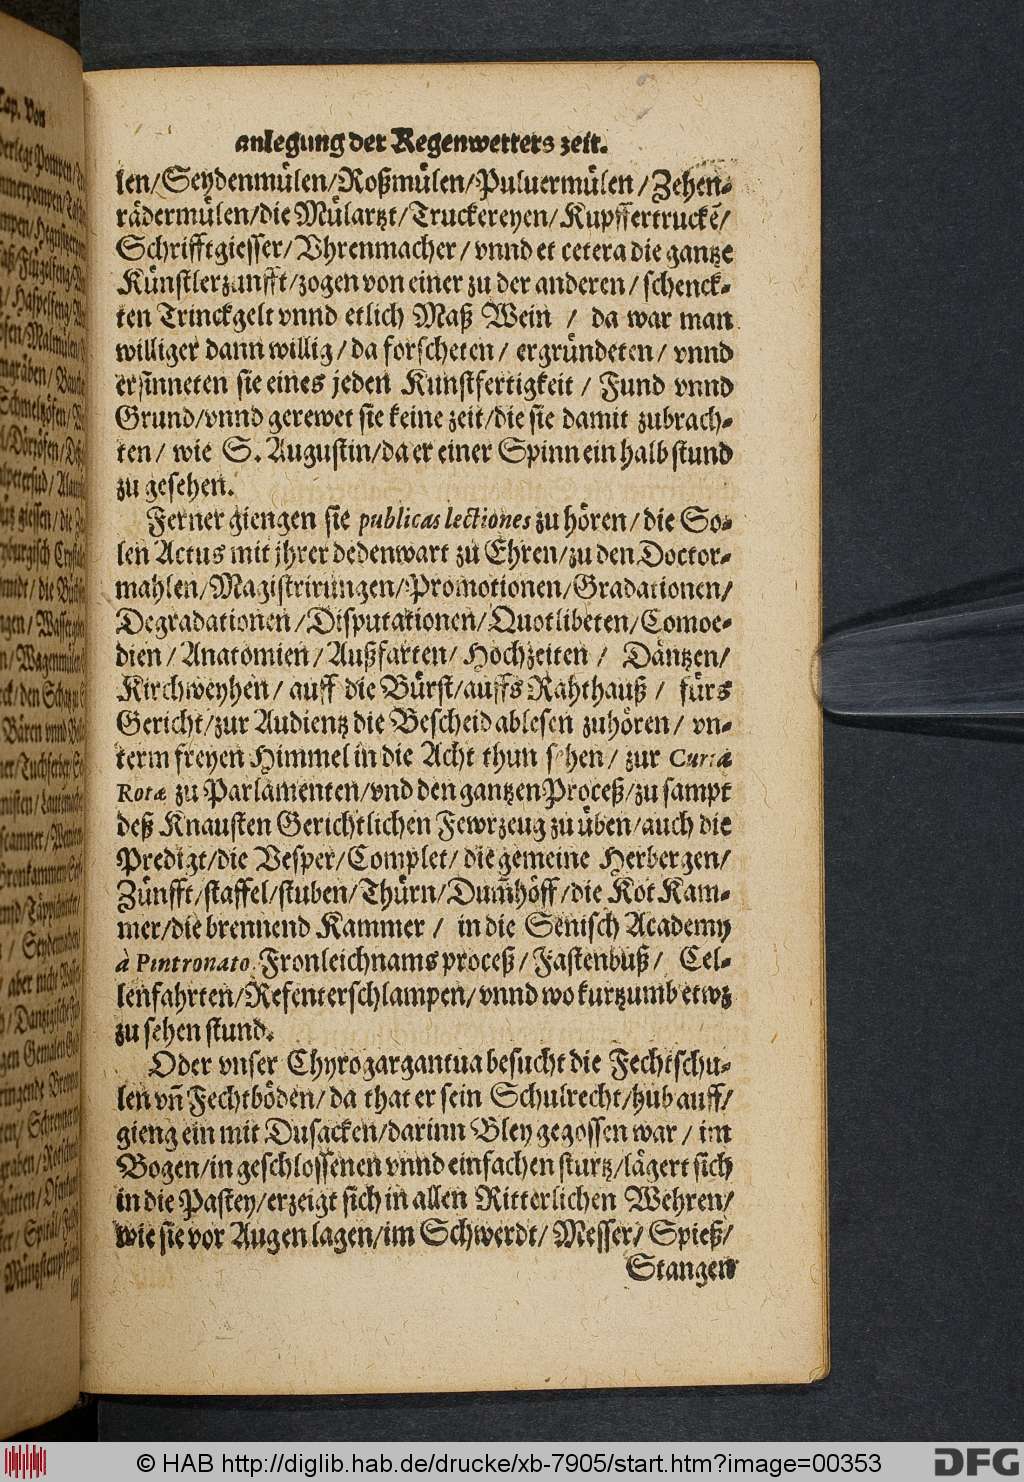 anlegung der Regenwetters zeit.
len/Seydenmülen/Roßmülen/Puluermülen/Zehen-
rädermülen/die Mülartzt/Truckereyen/Kupffertruckē/
Schrifftgiesser/Vhrenmacher/vnnd et cetera die gantze
Künstlerzunfft/zogen von einer zu der anderen/schenck-
ten Trinckgelt vnnd etlich Maß Wein / da war man
williger dann willig/da forscheten/ ergründeten/ vnnd
ersinneten sie eines jeden Kunstfertigkeit / Fund vnnd
Grund/vnnd gerewet sie keine zeit/die sie damit zubrach-
ten/ wie S. Augustin/da er einer Spinn ein halb stund
zu gesehen.
Ferner giengen sie publicas lectiones zu hören/die So-
len Actus mit jhrer dedenwart zu Ehren/zu den Doctor-
mahlen/Magistrirungen/Promotionen/Gradationen/
Degradationen/Disputationen/Quotlibeten/Comoe-
dien/Anatomien/Außfarten/Hochzeiten / Däntzen/
Kirchweyhen/ auff die Bürst/auffs Rahthauß / fürs
Gericht/zur Audientz die Bescheid ablesen zuhören/ vn-
term freyen Himmel in die Acht thun sehen/ zur Curiæ
Rotæ zu Parlamenten/vnd den gantzen Proceß/zu sampt
deß Knausten Gerichtlichen Fewrzeug zu üben/auch die
Predigt/die Vesper/Complet/ die gemeine Herbergen/
Zünfft/staffel/stuben/Thürn/Dum̃höff/die Rot Kam-
mer/die brennend Kammer / in die Senisch Academy
à Pintronato, Fronleichnams proceß/Fastenbuß/ Cel-
lenfahrten/Refenterschlampen/vnnd wo kurtzumb etwz
zu sehen stund.
Oder vnser Chyrogargantua besucht die Fechtschu-
len vñ Fechtböden/da that er sein Schulrecht/hub auff/
gieng ein mit Dusacken/darinn Bley gegossen war / im
Bogen/in geschlossenen vnnd einfachen sturtz/lägert sich
in die Pastey/erzeigt sich in allen Ritterlichen Wehren/
wie sie vor Augen lagen/im Schwerdt/Messer/Spieß/
Stangen
© HAB http://diglib.hab.de/drucke/xb-7905/start.htm?image=00353
DFG